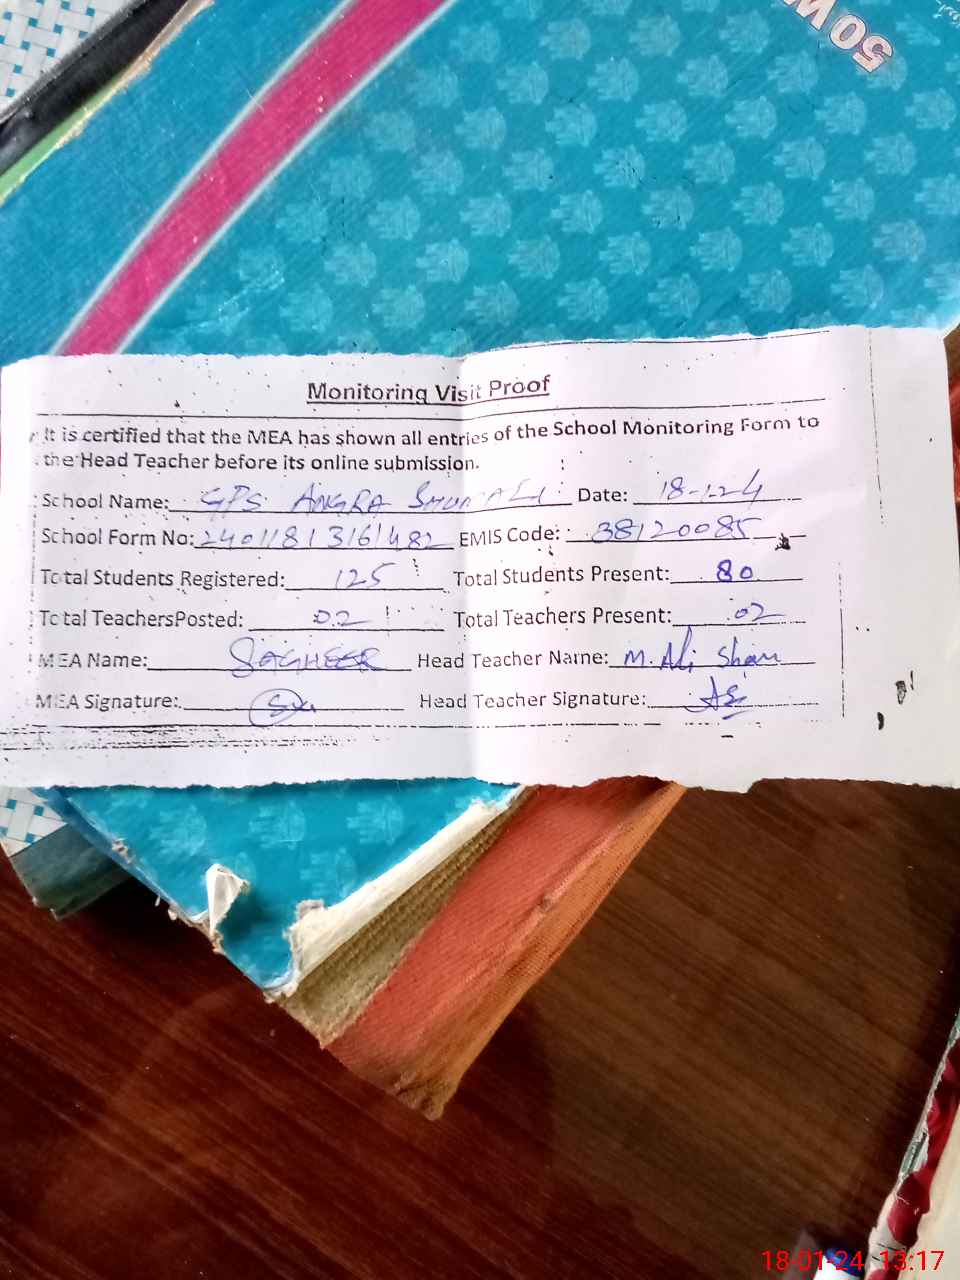 50 W
Monitoring Visit Proof
It is certified that the MEA has shown all entries of the School Monitoring Form to
the Head Teacher before its online submission.
School Name: GPS ANGRA SHUMALI Date: 18-1-24
School Form No: 24011813161482 EMIS Code: 38120085
Total Students Registered: 125 Total Students Present: 80
Total TeachersPosted: 02 Total Teachers Present: 02
MEA Name: SAGHEER Head Teacher Name: M. Ali Shan
MEA Signature: Head Teacher Signature:
18-01-24 13:17